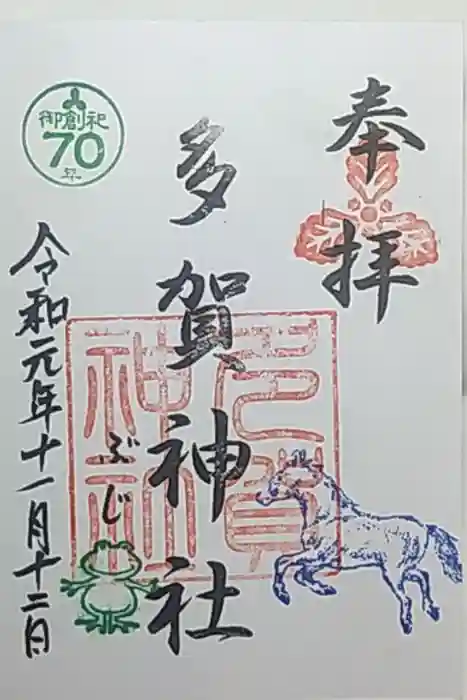 奉拝
多賀神社
多賀
神社
ぶじ
御創祀
70
年
令和元年十一月十二日